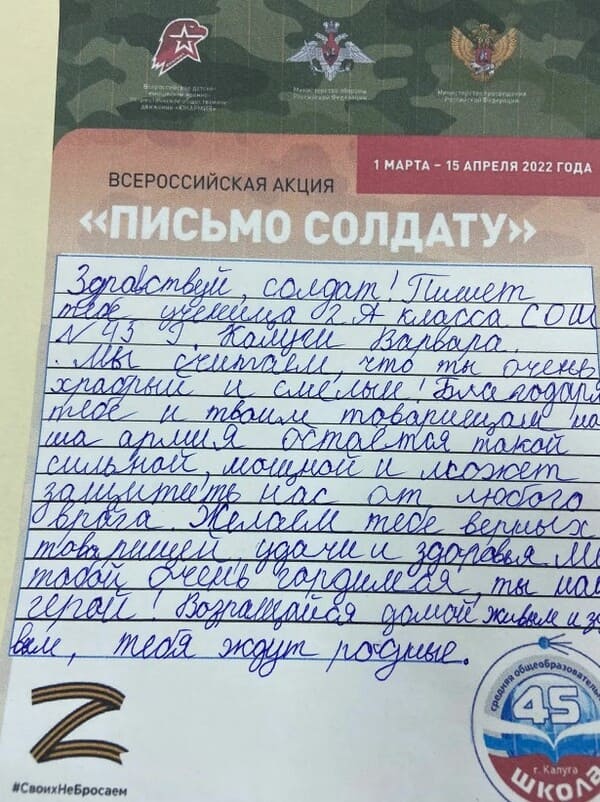 Всероссийское детско-
юношеское военно-
патриотическое общественное
движение «ЮНАРМИЯ»
Министерство обороны
Российской Федерации
Министерство просвещения
Российской Федерации
1 МАРТА – 15 АПРЕЛЯ 2022 ГОДА
ВСЕРОССИЙСКАЯ АКЦИЯ
«ПИСЬМО СОЛДАТУ»
Здравствуй, солдат! Пишет
тебе ученица 2 А класса СОШ
N 45 г. Калуги Варвара.
Мы считаем, что ты очень
храбрый и смелый! Благодаря
тебе и твоим товарищам на
ша армия остаётся такой
сильной, мощной и может
защитить нас от любого
врага. Желаем тебе верных
товарищей, удачи и здоровья. Мы
тобой очень гордимся, ты наш
герой! Возращайся домой живым и здо
вым, тебя ждут родные.
средняя общеобразователь
45
г. Калуга
ШКОЛА
Z
#СвоихНеБросаем